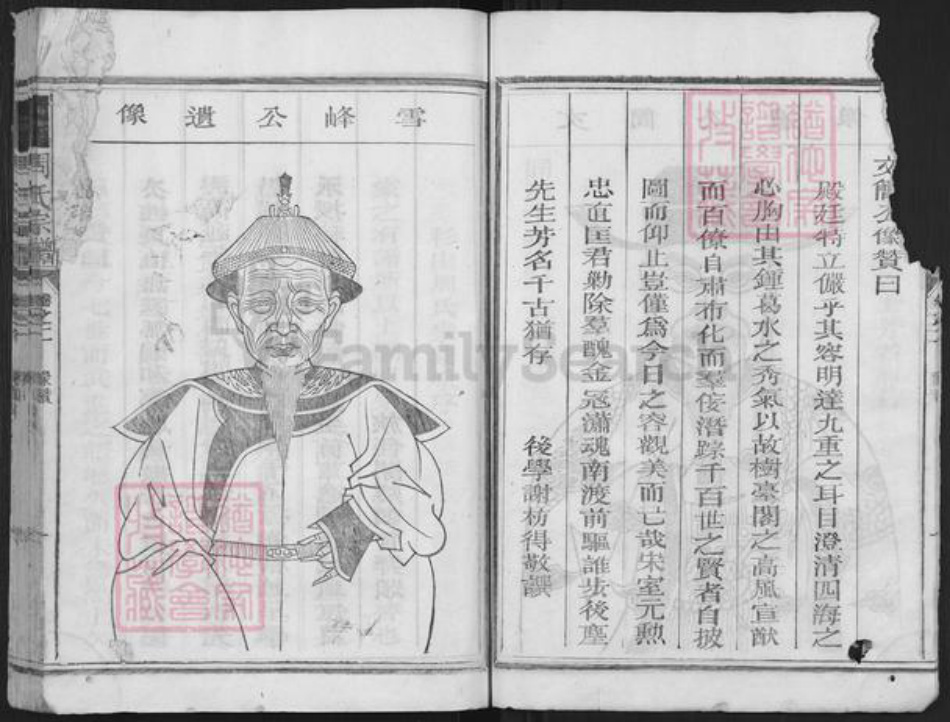 文簡公像贊曰
殿廷特立儼乎其容明達九重之耳目澄清四海之
心胸由其鍾葛水之秀氣以故樹臺閣之高風宣猷
而百僚自肅布化而羣侫潛踪千百世之賢者自披
圖而仰止豈僅爲今日之容觀美而已哉宋室元勲
忠直匡君勦除羣醜金冦潚魂南渡前驅誰步後塵
先生芳名千古猶存
後學謝枋得敬譔
雪峰公遺像
周氏宗譜
像贊
FamilySearch